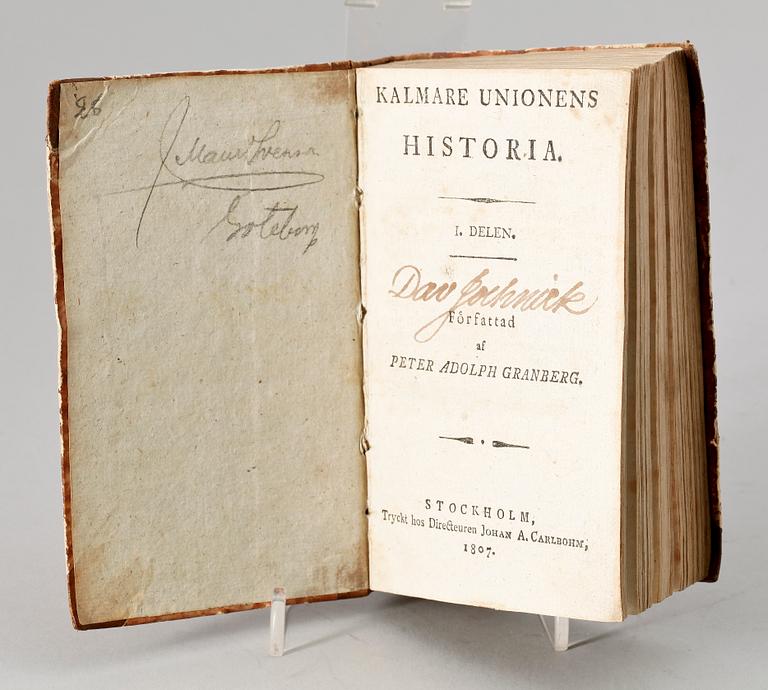 26
Göteborg
KALMARE UNIONENS
HISTORIA.
I. DELEN.
Dav Jochnick
Författad
af
PETER ADOLPH GRANBERG.
STOCKHOLM,
Tryckt hos Directeuren JOHAN A. CARLBOHM,
1807.